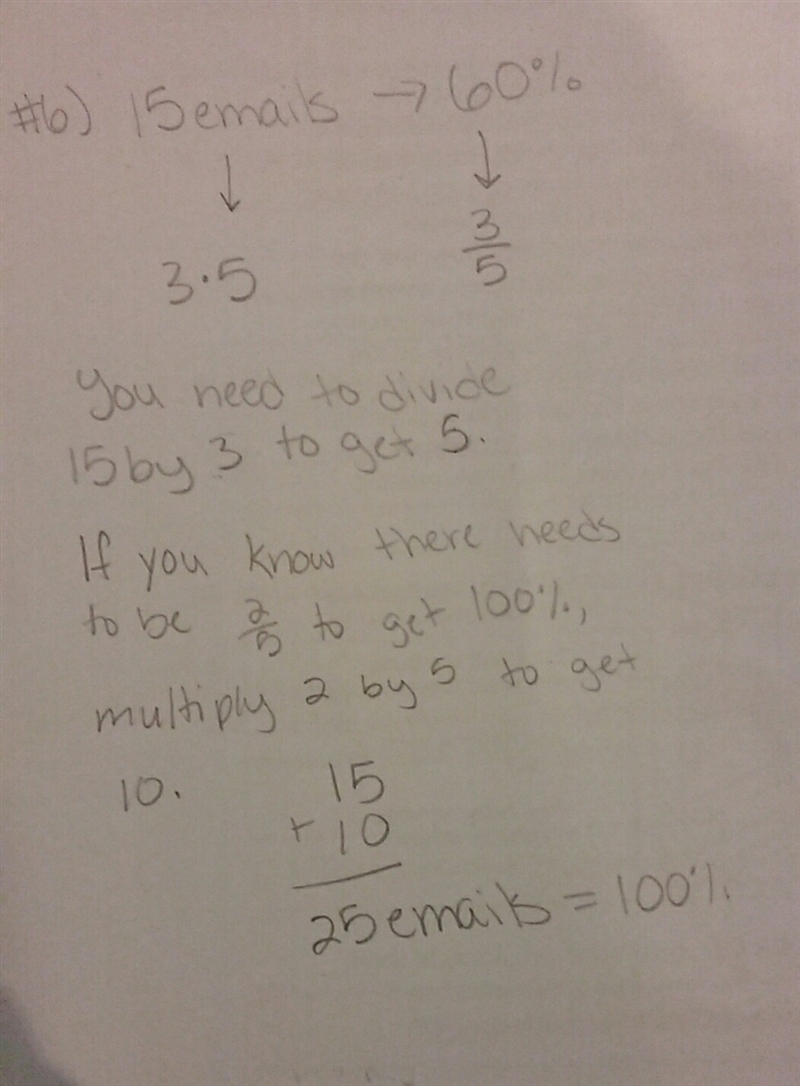 #6) 15 emails → 60%
↓ ↓
3·5 3/5
You need to divide
15 by 3 to get 5.
If you know there needs
to be 2/5 to get 100%,
multiply 2 by 5 to get
10. 15
+ 10
25 emails = 100%